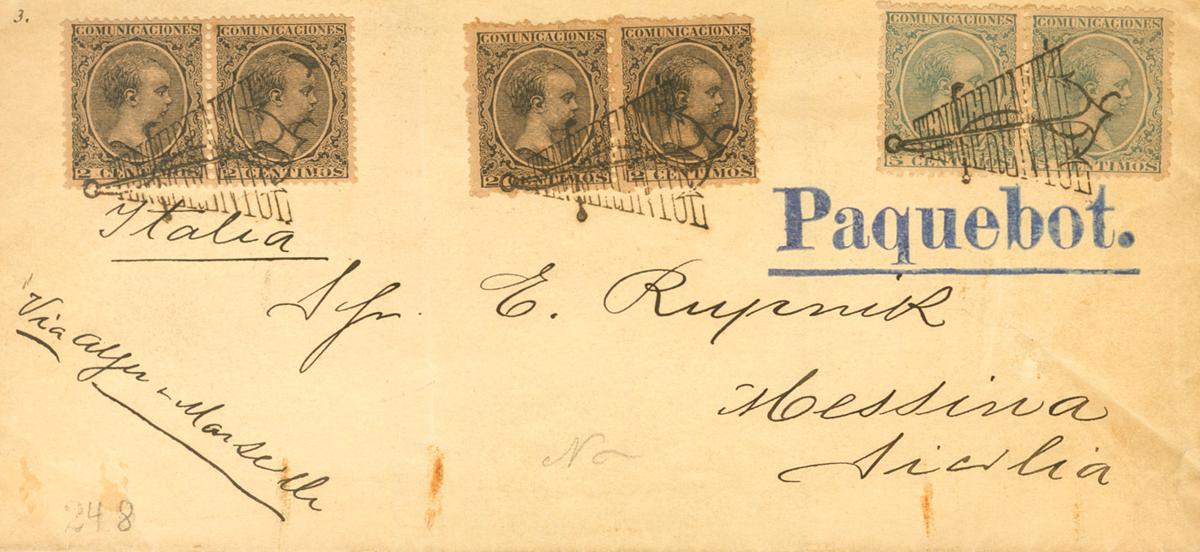 3.
COMUNICACIONES COMUNICACIONES
2 CENTIMOS 2 CENTIMOS
COMUNICACIONES COMUNICACIONES
2 CENTIMOS 2 CENTIMOS
COMUNICACIONES COMUNICACIONES
5 CENTIMOS CENTIMOS
Paquebot.
Italia
Sgr. E. Rupnik
Messina
Sicilia
Via Alger & Marseille
No
248